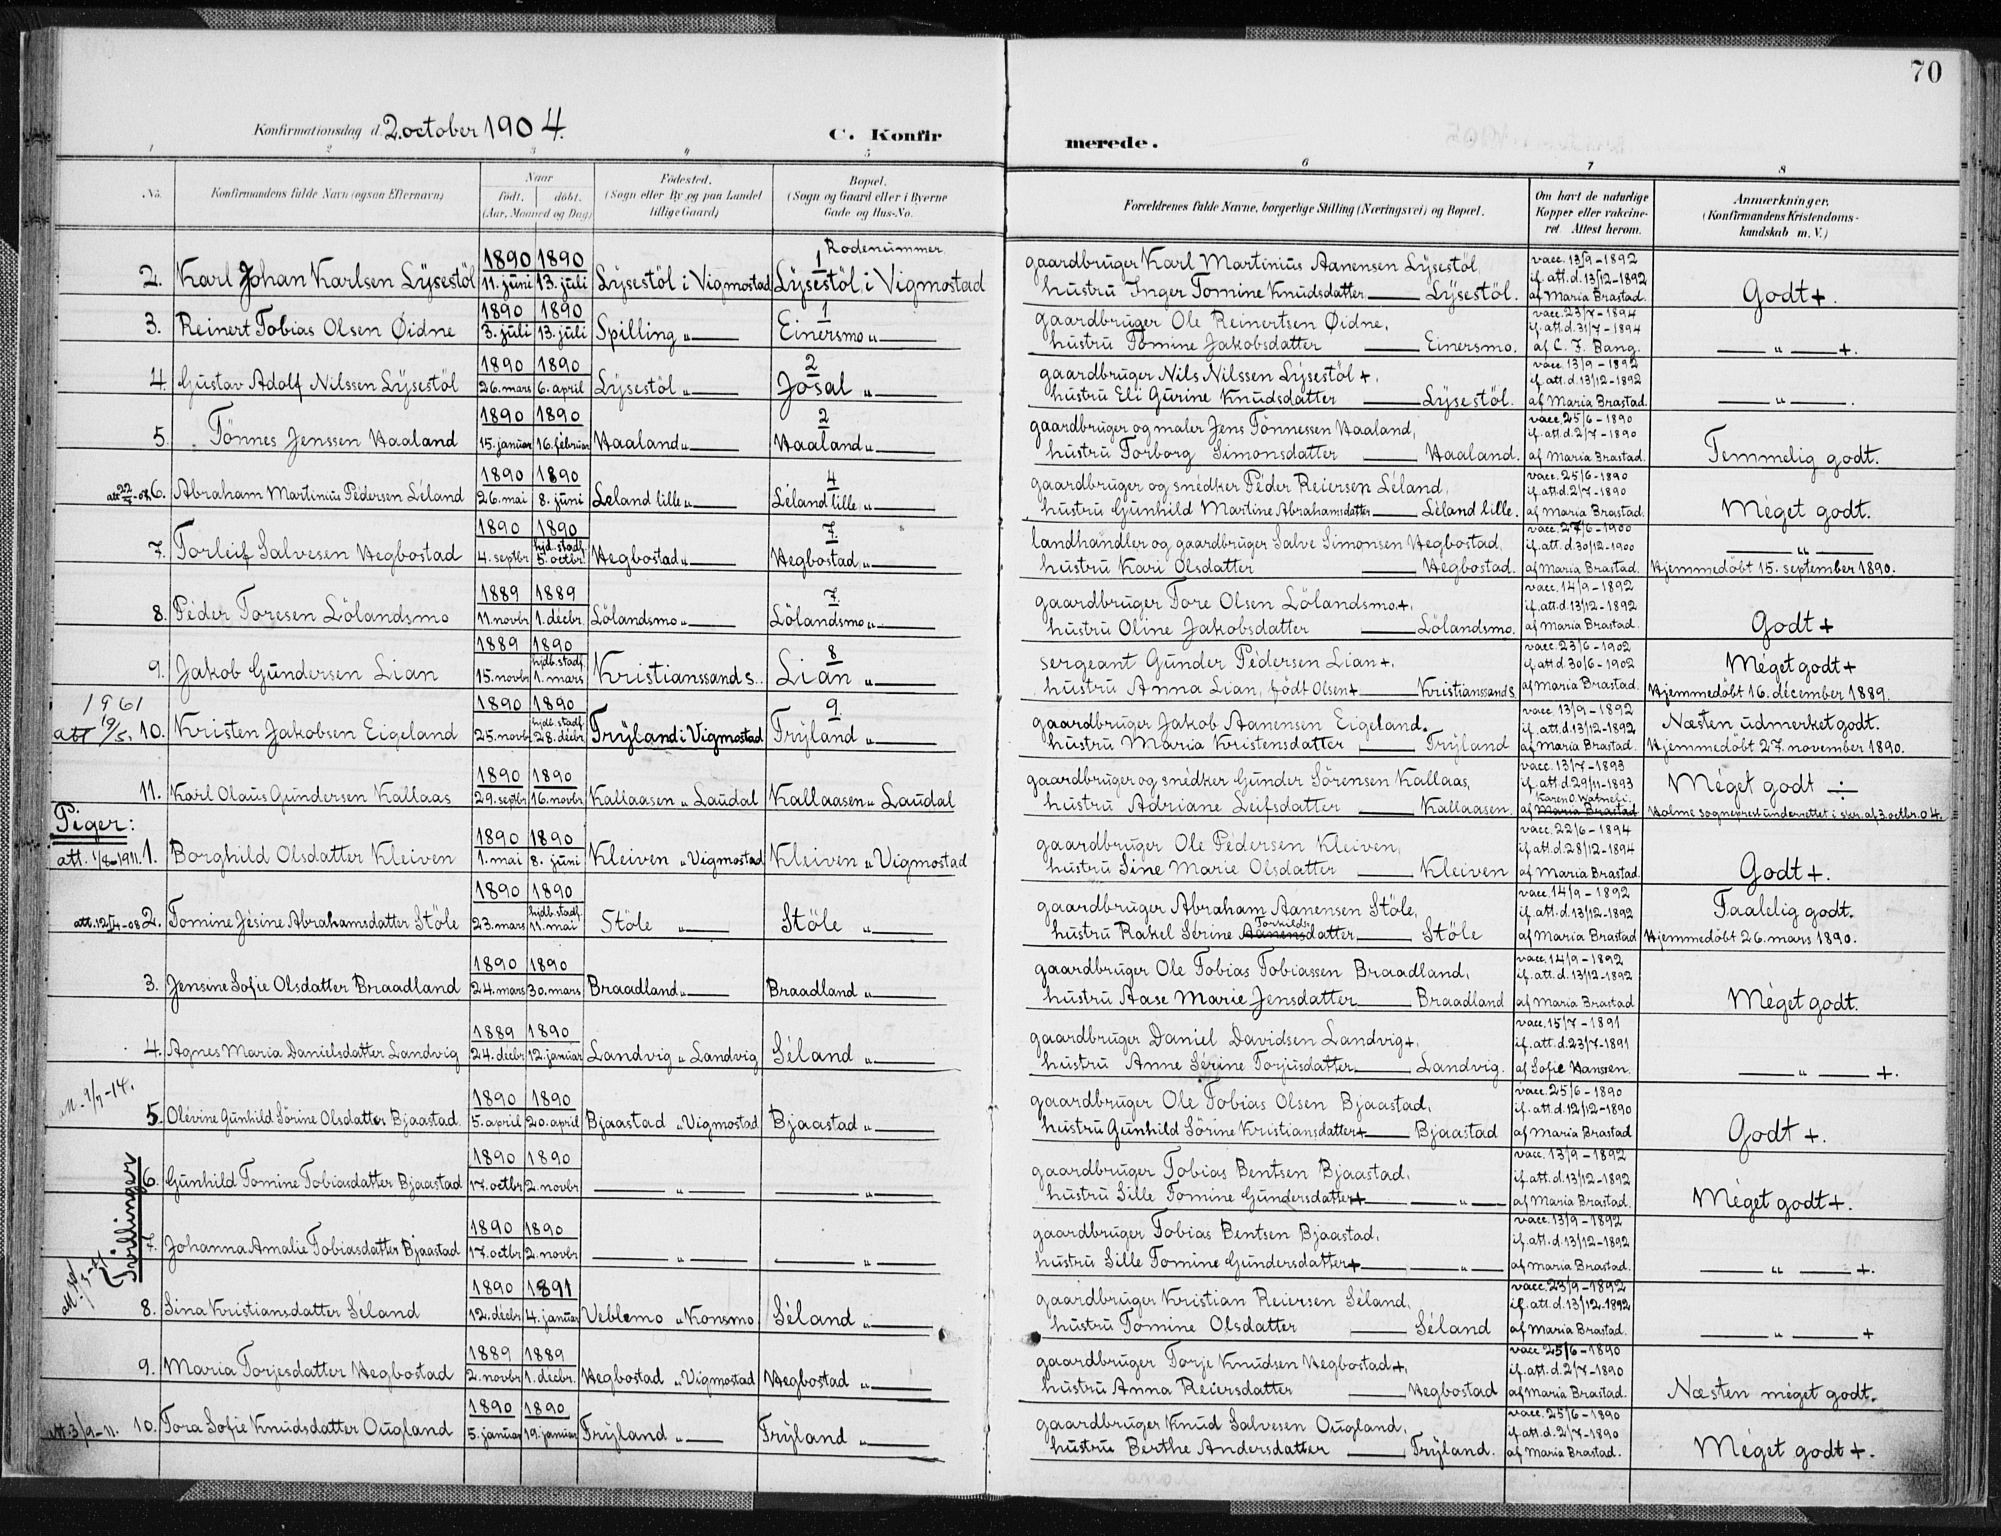 70
Konfirmationsdag d. 2. october 1904.
C. Konfirmerede.
1 2 3 4 5 6 7 8
No. | Konfirmandens fulde Navn (ogsaa Efternavn) | Naar født. døbt. (Aar, Maaned og Dag) | Födested. (Sogn eller By og paa Landet tillige Gaard) | Bopæl. (Sogn og Gaard eller i Byerne Gade og Hus-No. | Forældrenes fulde Navne, borgerlige Stilling (Næringsvei) og Bopæl. | Om havt de naturlige Kopper eller vakcineret. Attest herom. | Anmærkninger. (Konfirmandens Kristendomskundskab m. V.)
Rodenummer
2. Karl Johan Karlsen Lÿsestöl | 1890 11. juni | 1890 13. juli | Lÿsestöl i Vigmostad | 1 Lÿsestöl i Vigmostad | gaardbruger Karl Martinius Aanensen Lÿsestöl, hustru Inger Tomine Knudsdatter — Lÿsestöl. | vacc. 13/9-1892 if. att. d. 13/12-1892 af Maria Brastad. | Godt +.
3. Reinert Tobias Olsen Øidne | 1890 3. juli | 1890 13. juli | Spilling „ — | 1 Einersmo „ — | gaardbruger Ole Reinertsen Øidne, hustru Tomine Jakobsdatter — Einersmo. | vacc. 23/7-1894 if. att. d. 31/7-1894 af C. F. Bang. | — „ — +.
4. Gustav Adolf Nilssen Lÿsestöl | 1890 26. mars | 1890 6. april | Lÿsestöl „ — | 2 Josal „ — | gaardbruger Nils Nilssen Lÿsestöl +, hustru Eli Gurine Knudsdatter — Lÿsestöl. | vacc. 13/9-1892 if. att. d. 13/12-1892 af Maria Brastad. | — „ — .
5. Tönnes Jenssen Haaland | 1890 15. januar | 1890 16. februar | Haaland „ — | 2 Haaland „ — | gaardbruger og maler Jens Tönnessen Haaland, hustru Torborg Simonsdatter — Haaland. | vacc. 25/6-1890 if. att. d. 2/7-1890 af Maria Brastad. | Temmelig godt.
6. Abraham Martinius Pedersen Leland | 1890 26. mai | 1890 8. juni | Leland lille „ — | 4 Leland lille „ — | gaardbruger og snedker Peder Reiersen Leland, hustru Gunhild Martine Abrahamsdatter — Leland lille. | vacc. 25/6-1890 if. att. d. 2/7-1890 af Maria Brastad. | Meget godt.
7. Torleif Salvesen Hegbostad | 1890 4. septbr | 1890 hjd. stadf. 5. octbr. | Hegbostad „ — | 7. Hegbostad „ — | landhandler og gaardbruger Salve Simonsen Hegbostad, hustru Kari Olsdatter — Hegbostad. | vacc. 27/6-1900 if. att. d. 30/12-1900 af Maria Brastad. | — „ — Hjemmedöbt 15. september 1890.
8. Peder Toresen Lölandsmo | 1889 11. novbr | 1889 1. decbr. | Lölandsmo „ — | 7. Lölandsmo „ — | gaardbruger Tore Olsen Lölandsmo +, hustru Oline Jakobsdatter — Lölandsmo. | vacc. 14/9-1892 if. att. d. 13/12-1892 af Maria Brastad. | Godt +
9. Jakob Gundersen Lian | 1889 15. novbr | 1890 hjdb. stadf. 1. mars | Kristianssand S. | 8 Lian „ — | sergeant Gunder Pedersen Lian +, hustru Anna Lian, födt Olsen + — Kristianssand S. | vacc. 23/6-1902 if. att. d. 30/6-1902 af Maria Brastad. | Meget godt + Hjemmedöbt 16. december 1889.
1961 att 19/5. 10. Kristen Jakobsen Eigeland | 1890 25. novbr | 1890 hjdb. stadf. 28. decbr | Frÿland i Vigmostad | 9. Frÿland „ — | gaardbruger Jakob Aanensen Eigeland. hustru Maria Kristensdatter — Frÿland | vacc. 13/9-1892 if. att. d. 13/12-1892 af Maria Brastad. | Næsten udmerket godt. Hjemmedöbt 27. november 1890.
11. Karl Olaus Gundersen Kallaas | 1890 29. septbr | 1890 16. novbr | Kallaasen „ Laudal | Kallaasen „ Laudal | gaardbruger og snedker Gunder Sörensen Kallaas, hustru Adriane Leifsdatter — Kallaasen | vacc. 13/7-1893 if. att. d. 29/11-1893 af Maria Brastad | Meget godt ÷ Holme sogneprest underrettet i skr. af 3. octbr. 04.
Piger:
att. 1/8 1911. 1. Borghild Olsdatter Kleiven | 1890 1. mai | 1890 8. juni | Kleiven „ Vigmostad | Kleiven „ Vigmostad | gaardbruger Ole Pedersen Kleiven, hustru Sine Marie Olsdatter — Kleiven | vacc. 22/6-1894 if. att. d. 28/12-1894 af Maria Brastad. | Godt +.
att. 12/4-08 2. Tomine Jesine Abrahamsdatter Stöle | 1890 23. mars | 1890 hjdb. stadf. 11. mai | Stöle „ — | Stöle „ — | gaardbruger Abraham Aanensen Stöle, hustru Rakel Serine Aanensdatter Torkilds — Stöle | vacc. 14/9-1892 if. att. d. 13/12-1892 af Maria Brastad | Taalelig godt. Hjemmedöbt 26. mars 1890.
3. Jensine Sofie Olsdatter Braadland | 1890 24. mars | 1890 30. mars | Braadland „ — | Braadland „ — | gaardbruger Ole Tobias Tobiassen Braadland, hustru Aase Marie Jensdatter — Braadland | vacc. 14/9-1892 if. att. d. 13/12-1892 af Maria Brastad | Meget godt.
4. Agnes Maria Danielsdatter Landvig | 1889 24. decbr | 1890 12. januar | Landvig „ Landvig | Seland „ — | gaardbruger Daniel Davidsen Landvig +, hustru Anne Serine Torjusdatter — Landvig. | vacc. 15/7-1891 if. att. d. 23/7-1891 af Sofie Hanssen. | — „ — +.
5. Olevine Gunhild Sörine Olsdatter Bjaastad | 1890 5. april | 1890 20. april | Bjaastad „ Vigmostad | Bjaastad „ — | gaardbruger Ole Tobias Olsen Bjaastad, hustru Gunhild Sörine Kristiansdatter + — Bjaastad | vacc. 25/6-1890 if. att. d. 12/12-1890 af Maria Brastad | Godt +.
Tvillinger
6. Gunhild Tomine Tobiasdatter Bjaastad | 1890 17. octbr | 1890 2. novbr | — „ — | — „ — | gaardbruger Tobias Bentsen Bjaastad, hustru Sille Tomine Gundersdatter + — „ — | vacc. 13/9-1892 if. att. d. 13/12-1892 af Maria Brastad. | Meget godt +.
7. Johanna Amalie Tobiasdatter Bjaastad | 1890 17. octbr | 1890 2. novbr | — „ — | — „ — | gaardbruger Tobias Bentsen Bjaastad, hustru Sille Tomine Gundersdatter + — „ — | vacc. 13/9-1892 if. att. d. 13/12-1892 af Maria Brastad. | — „ — +.
8. Sina Kristiansdatter Seland | 1890 12. decbr | 1891 4. januar | Veblemo „ Konsmo | Seland „ — | gaardbruger Kristian Reiersen Seland, hustru Tomine Olsdatter — Seland | vacc. 23/9-1892 if. att. d. 13/12-1892 af Maria Brastad. | — „ — +
9. Maria Torjesdatter Hegbostad | 1889 2. novbr | 1889 1. decbr. | Hegbostad „ Vigmostad | Hegbostad „ — | gaardbruger Torje Knudsen Hegbostad +, hustru Anna Reiersdatter — Hegbostad | vacc. 25/6-1890 if. att. d. 2/7-1890 af Maria Brastad. | Næsten meget godt.
att. 3/9-11. 10. Tora Sofie Knudsdatter Ougland | 1890 5. januar | 1890 19. januar | Frÿland „ — | Frÿland „ — | gaardbruger Knud Salvesen Ougland, hustru Berthe Andersdatter — Frÿland. | vacc. 25/6-1890 if. att. d. 2/7-1890 af Maria Brastad. | Meget godt +.